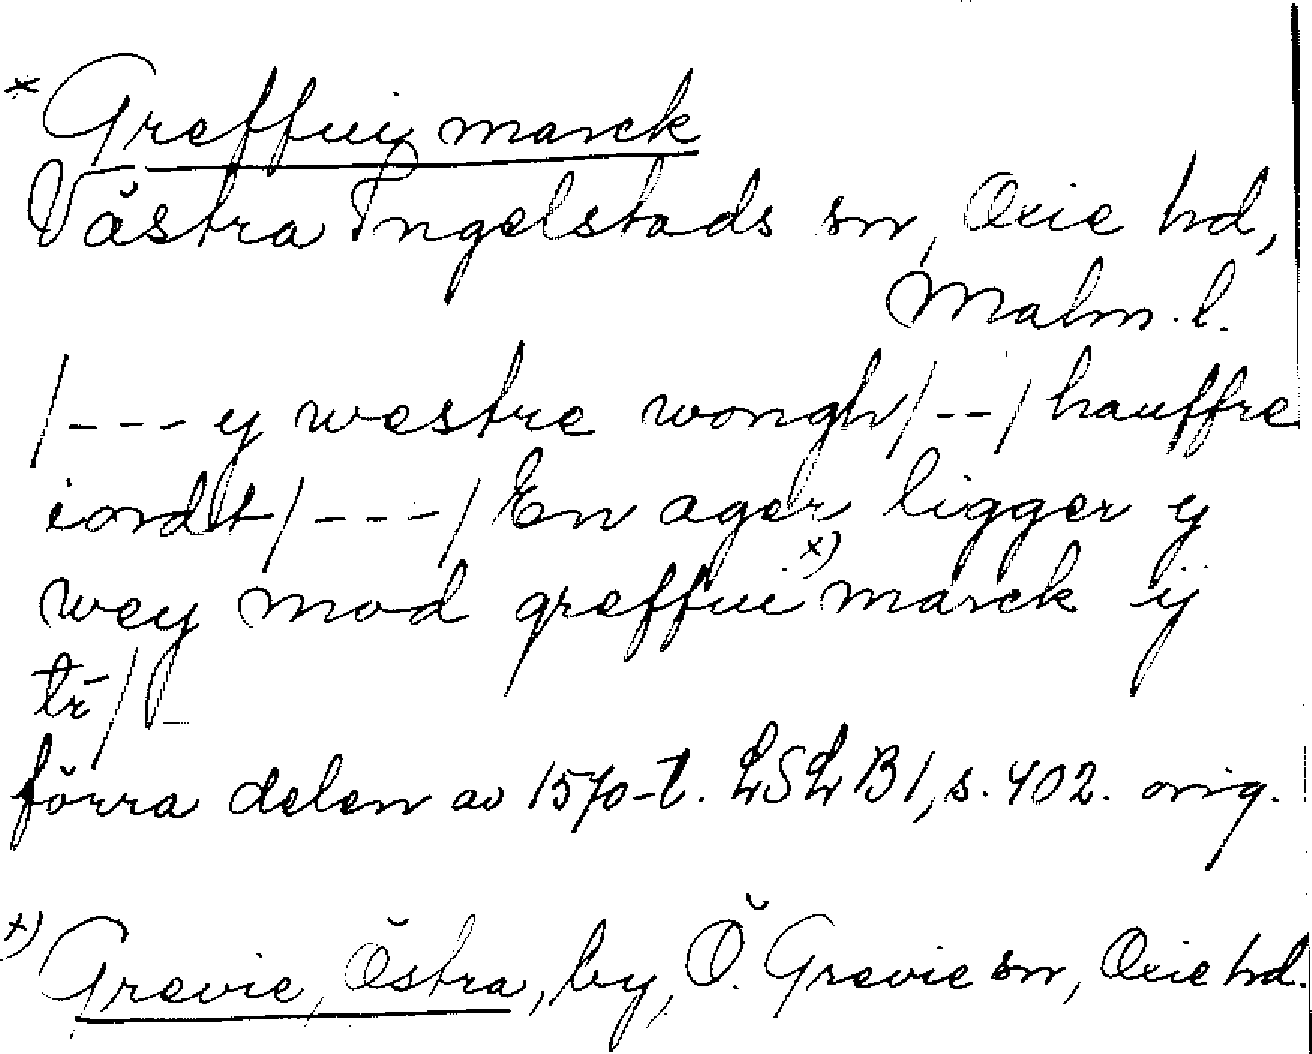 * Greffui marck
Västra Ingelstads sn, Oxie hd,
Malm. l.
/--- y westre wongh/--/ hauffre
iordt/---/ En ager ligger y
wey mod greffui x) marck ÿ
tr/-
förra delen av 1570-t. LSL B1, s. 402. orig.
x) Grevie, Östra, by, Ö. Grevie sn, Oxie hd.